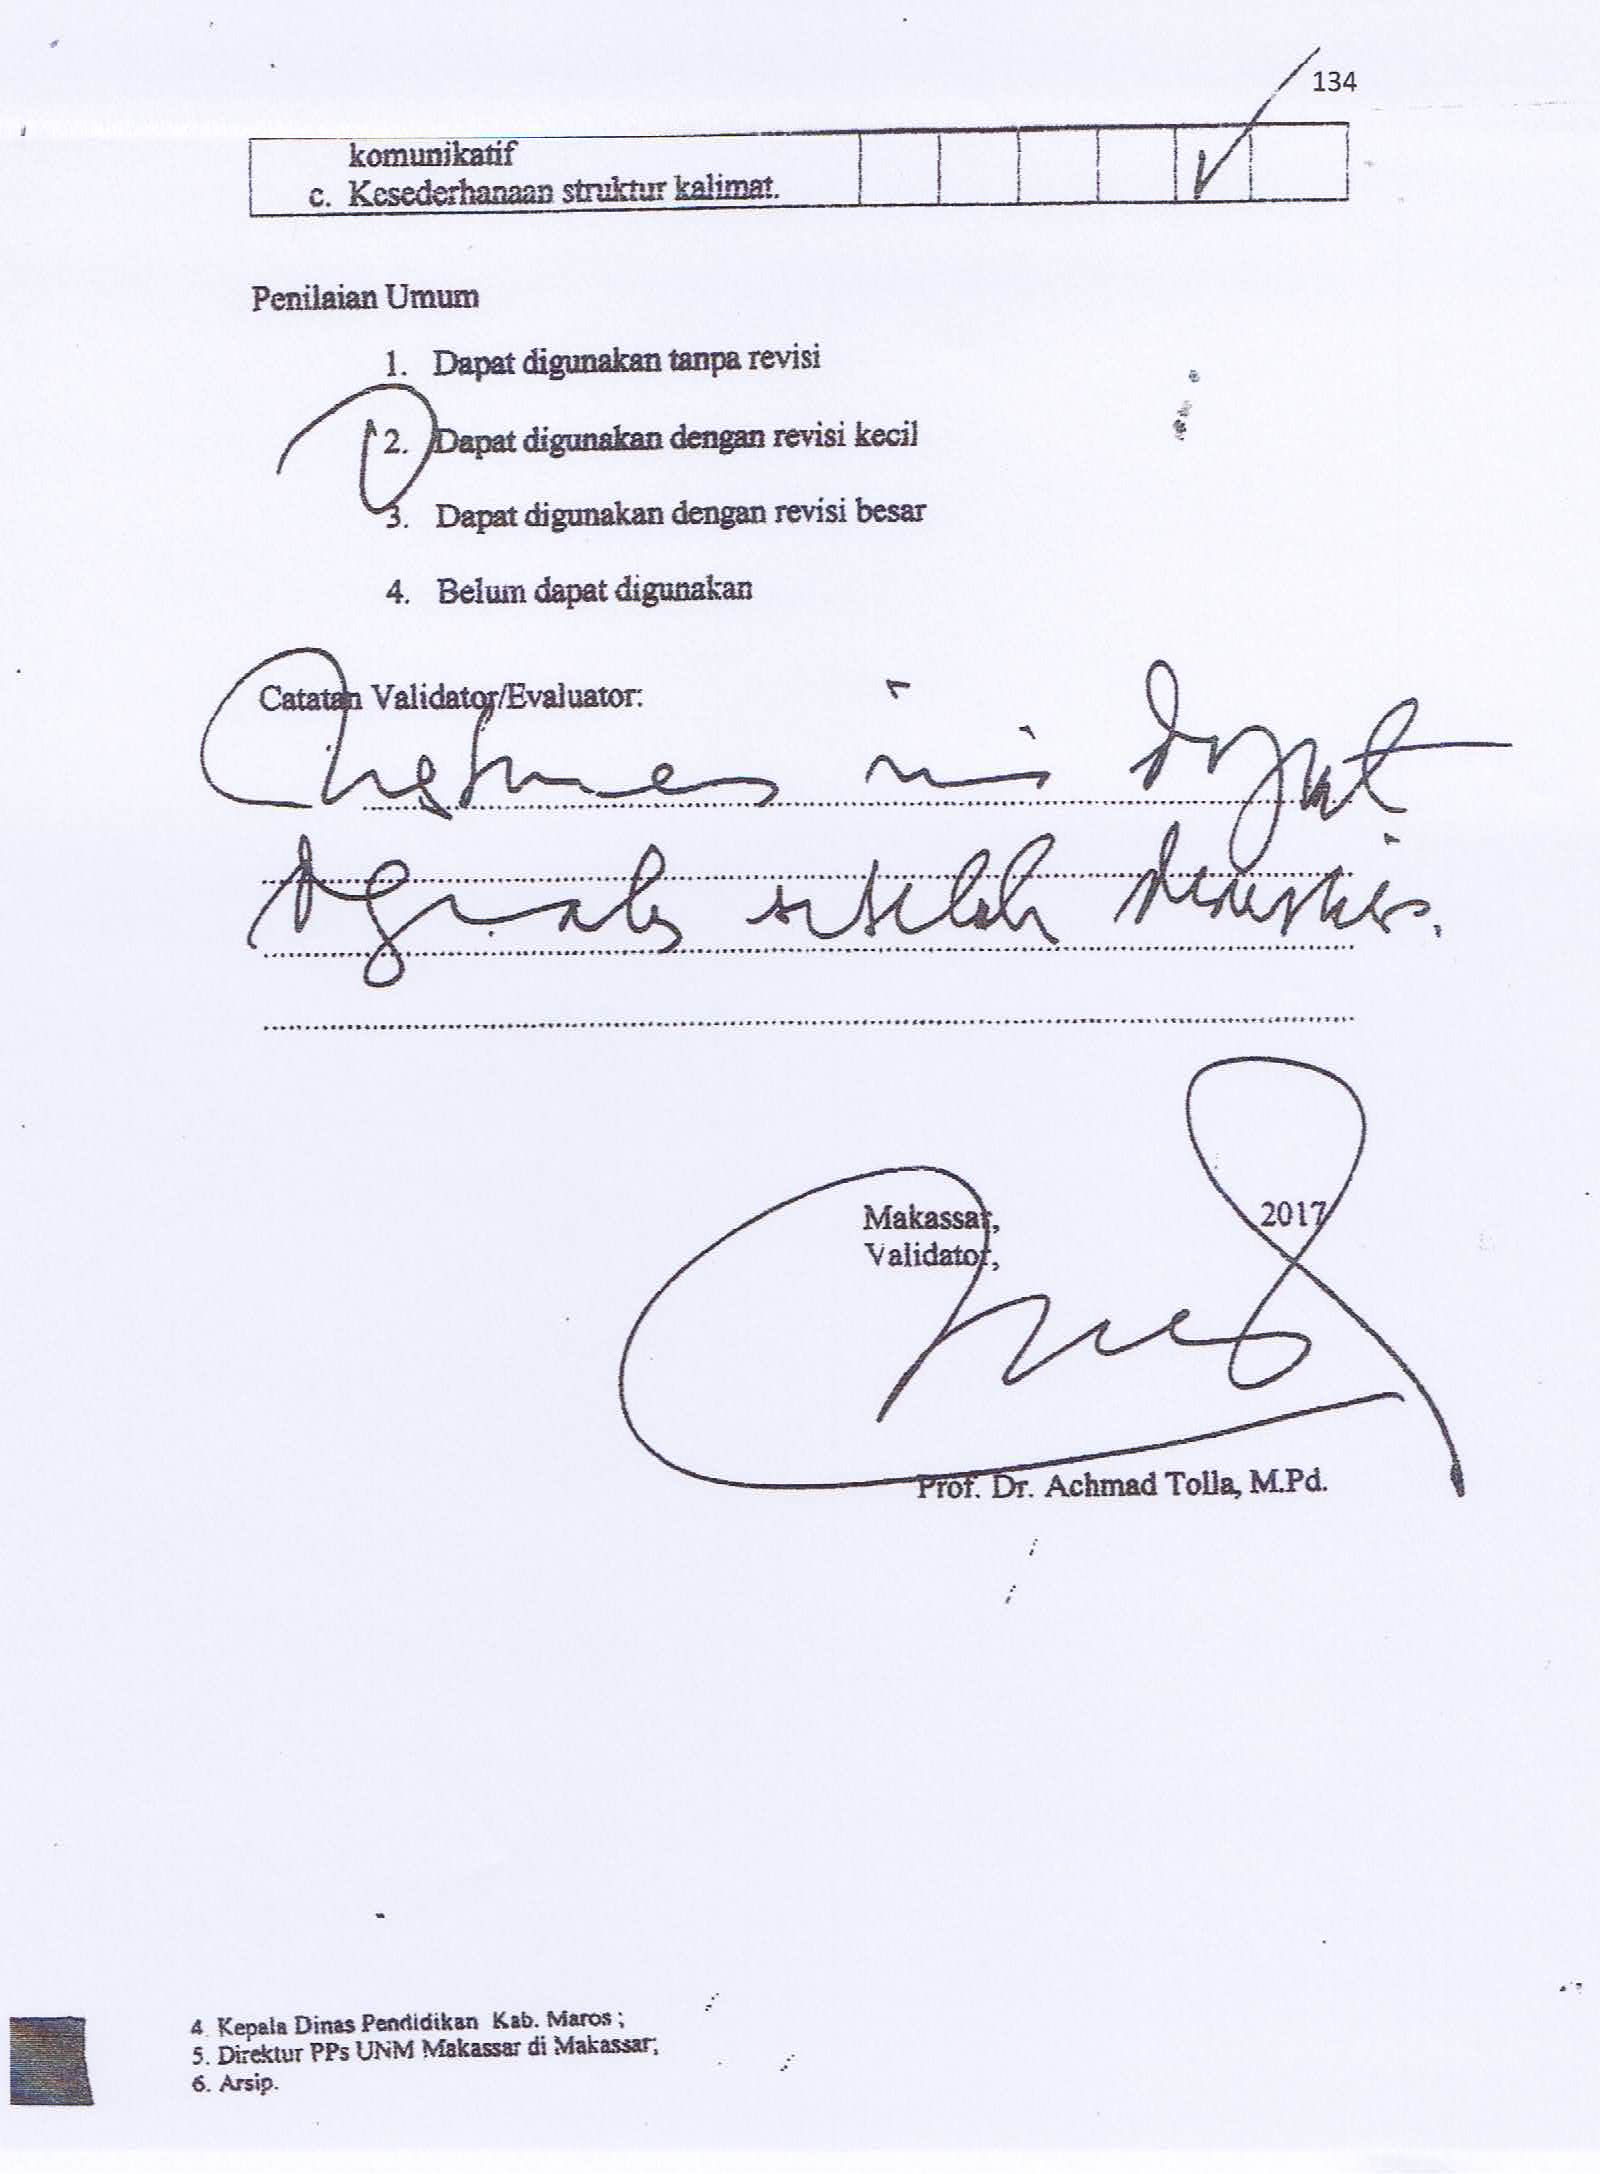 134
komunikatif
c. Kesederhanaan struktur kalimat.
Penilaian Umum
1. Dapat digunakan tanpa revisi
2. Dapat digunakan dengan revisi kecil
3. Dapat digunakan dengan revisi besar
4. Belum dapat digunakan
Catatan Validator/Evaluator:
ini dapat
setelah
Makassar, 2017
Validator,
Prof. Dr. Achmad Tolla, M.Pd.
4. Kepala Dinas Pendidikan Kab. Maros ;
5. Direktur PPs UNM Makassar di Makassar;
6. Arsip.